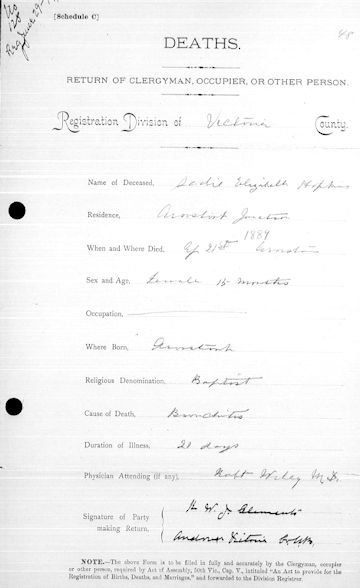 No
128
Reg June 29
48
[Schedule C]
DEATHS.
RETURN OF CLERGYMAN, OCCUPIER, OR OTHER PERSON.
Registration Division of Victoria County.
Name of Deceased, Sadie Elizabeth Hopkins
Residence, Aroostook Junction
1889
When and Where Died, Ap 21st
Sex and Age, Female 15 months
Occupation,
Where Born, Aroostook
Religious Denomination, Baptist
Cause of Death, Bronchitis
Duration of Illness, 21 days
Physician Attending (if any), Robt Wiley M.D.
Signature of Party
making Return,
W. J. Clements
Andover Victoria
NOTE.—The above Form is to be filled in fully and accurately by the Clergyman, occupier
or other person, required by Act of Assembly, 50th Vic., Cap. V, intituled "An Act to provide for the
Registration of Births, Deaths, and Marriages," and forwarded to the Division Registrar.